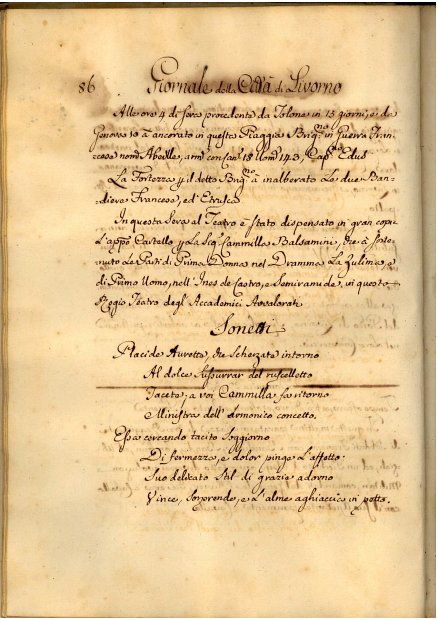 86 Giornale della Città di Livorno
Alle ore 4 di sera procedente da Tolone in 15 giorni, e da
Genova 10 è ancorato in queste Piaggie Brig.no in Guerra Fran-
cese nom.to Abeille, arm.to con Can.i 18 Uom.i 143, Cap.no Edus
La Fortezza, e il detto Brig.no à inalberato Le due Ban-
diere Francese, ed Etrusca
In questa Sera al Teatro è stato dispensato in gran copia
L'app.o Cartello p La Sig.ra Cammilla Balsamini, che à soste-
nuto Le Parti di Prima Donna nel Dramma La Zulima, e
di Primo Uomo, nell'Ines de Castro, e Semiramide in questo
Regio Teatro degl'Accademici Avvalorati
Sonetti
Placide Aurette, che Scherzate intorno
Al dolce Sussurrar del ruscelletto
Tacete; a voi Cammilla fa ritorno
Ministra dell'armonico concetto.
Essa cercando tacito Soggiorno
Di fermezza, e dolor pinge L'affetto.
Suo delicato Stil di grazie adorno
Vince, Sorprende, e L'alme agghiaccia in petto.